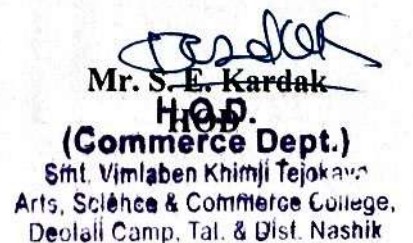 Mr. S. E. Kardak
HOD
H.O.D.
(Commerce Dept.)
Smt. Vimlaben Khimji Tejokaya
Arts, Science & Commerce College,
Deolali Camp, Tal. & Dist. Nashik